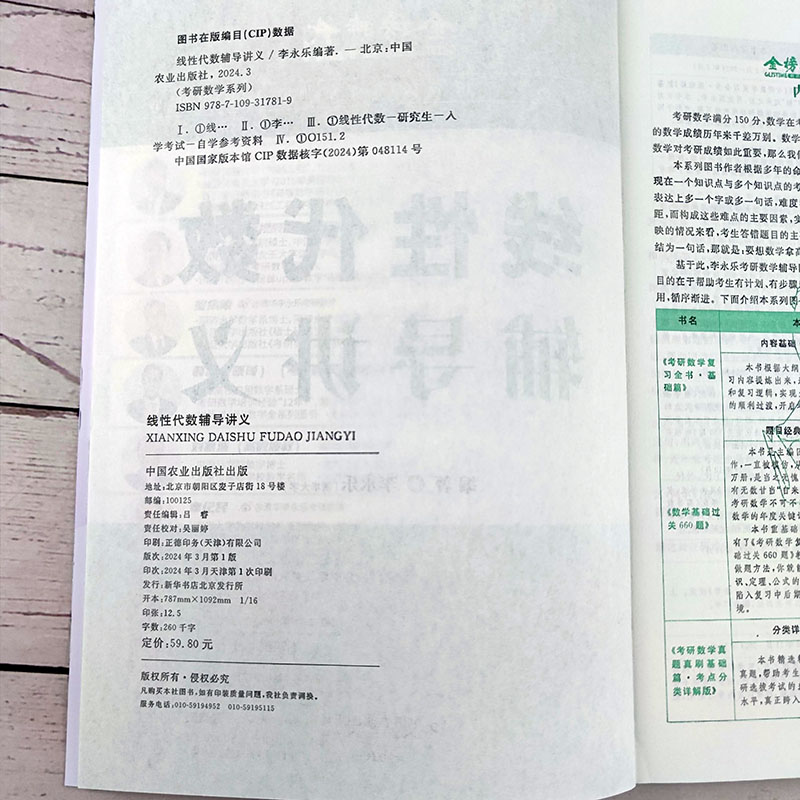 图书在版编目(CIP)数据
线性代数辅导讲义 / 李永乐编著. — 北京:中国
农业出版社, 2024.3
(考研数学系列)
ISBN 978-7-109-31781-9
Ⅰ. ①线… Ⅱ. ①李… Ⅲ. ①线性代数—研究生—入
学考试—自学参考资料 Ⅳ. ①O151.2
中国国家版本馆 CIP 数据核字(2024)第 048114 号
线性代数
辅导讲义
编著 李永乐
线性代数辅导讲义
XIANXING DAISHU FUDAO JIANGYI
中国农业出版社出版
地址:北京市朝阳区麦子店街 18 号楼
邮编:100125
责任编辑:吕 睿
责任校对:吴丽婷
印刷:正德印务(天津)有限公司
版次:2024 年 3 月第 1 版
印次:2024 年 3 月天津第 1 次印刷
发行:新华书店北京发行所
开本:787mm×1092mm 1/16
印张:12.5
字数:260 千字
定价:59.80 元
版权所有·侵权必究
凡购买本社图书,如有印装质量问题,我社负责调换。
服务电话:010-59194952 010-59195115
金榜
内
考研数学满分 150 分,数学在考
的数学成绩历年来千差万别。数学
数学对考研成绩如此重要,那么我们
本系列图书作者根据多年的命
现在一个知识点与多个知识点的考
表达上多一个字或多一句话,难度
距,而构成这些难点的主要因素,实
映的情况来看,考生答错题目的主
结为一句话,那就是,要想数学拿高
基于此,李永乐考研数学辅导
目的在于帮助考生有计划、有步骤
用,循序渐进。下面介绍本系列图
书名
本
内容基础
《考研数学复
习全书·基
础篇》
本书根据大纲
习内容提炼出来,
和复习逻辑,实现
的顺利过渡,开启
题目经典
《数学基础过
关 660 题》
本书是主编
作,一直被模仿,
万册,是当之无愧
有无数甘当“自来
考研数学不可不
数学的年度关键
本书重基础
有了《考研数学
础过关 660 题》
做题方法,你就能
识、定理、公式的
陷入复习中后期
境。
分类详
《考研数学真
题真刷基础
篇·考点分
类详解版》
本书精选精
真题,帮助考生
研选拔考试的
水平,真正跨入